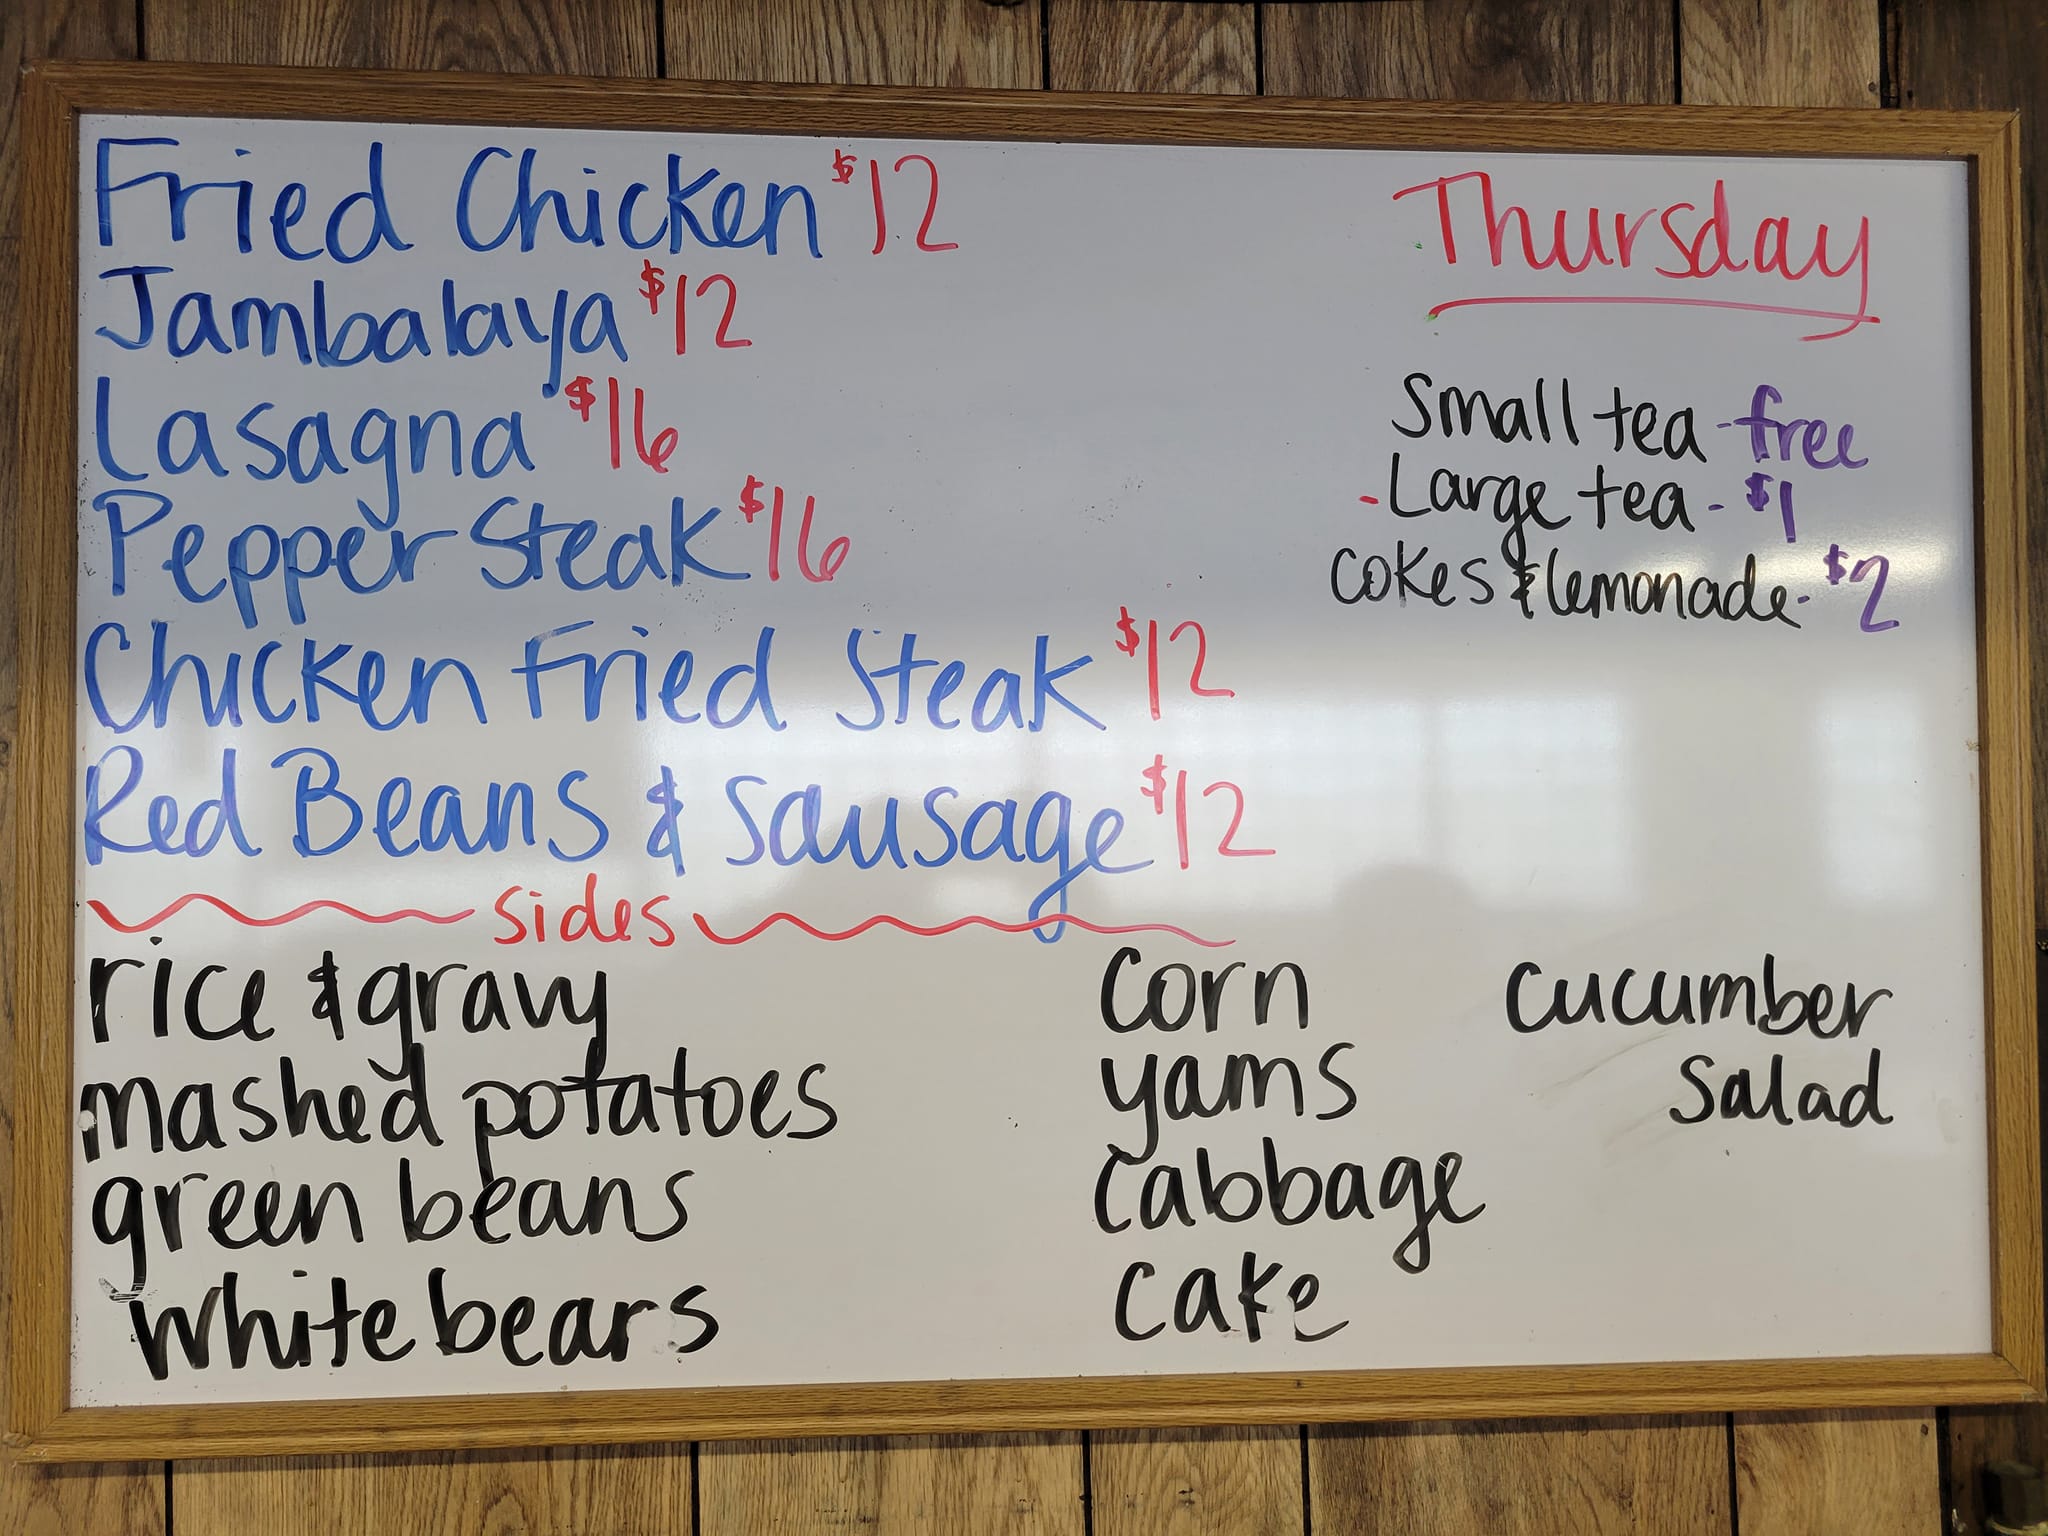 Fried Chicken $12
Jambalaya $12
Lasagna $16
Pepper Steak $16
Chicken Fried Steak $12
Red Beans & Sausage $12
Thursday
Small tea - free
- Large tea - $1
cokes & lemonade - $2
sides
rice & gravy
mashed potatoes
green beans
white bears
corn
yams
cabbage
cake
cucumber
salad